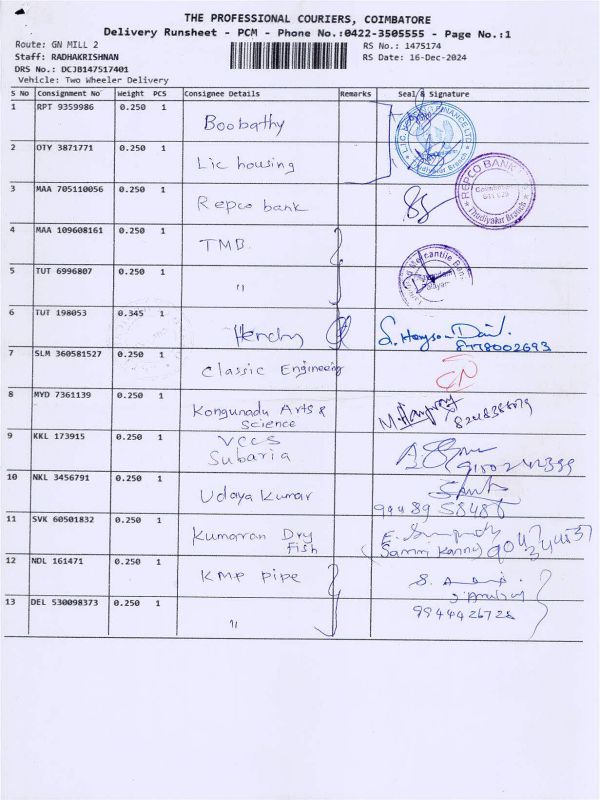 THE PROFESSIONAL COURIERS, COIMBATORE
Delivery Runsheet - PCM - Phone No.:0422-3505555 - Page No.:1
Route: GN MILL 2
RS No.: 1475174
Staff: RADHAKRISHNAN
RS Date: 16-Dec-2024
DRS No.: DCJB147517401
Vehicle: Two Wheeler Delivery
S No Consignment No Weight PCS Consignee Details Remarks Seal & Signature
1 RPT 9359986 0.250 1 Boobathy
2 OTY 3871771 0.250 1 Lic housing
Thudiyalur Branch
3 MAA 705110056 0.250 1 Repco bank
REPCO BANK
Coimbatore
Thudiyalur Branch
4 MAA 109608161 0.250 1 TMB
5 TUT 6996807 0.250 1 "
Mercantile Ban
6 TUT 198053 0.345 1 Henchy
8778002693
7 SLM 360581527 0.250 1 Classic Engineering
8 MYD 7361139 0.250 1 Kongunadu Arts &
Science
9 KKL 173915 0.250 1 VCCS
Subaria
10 NKL 3456791 0.250 1 Udaya Kumar
99489 58486
11 SVK 60501832 0.250 1 Kumaran Dry
Fish
12 NDL 161471 0.250 1 KMP pipe
13 DEL 530098373 0.250 1 "
9944426728